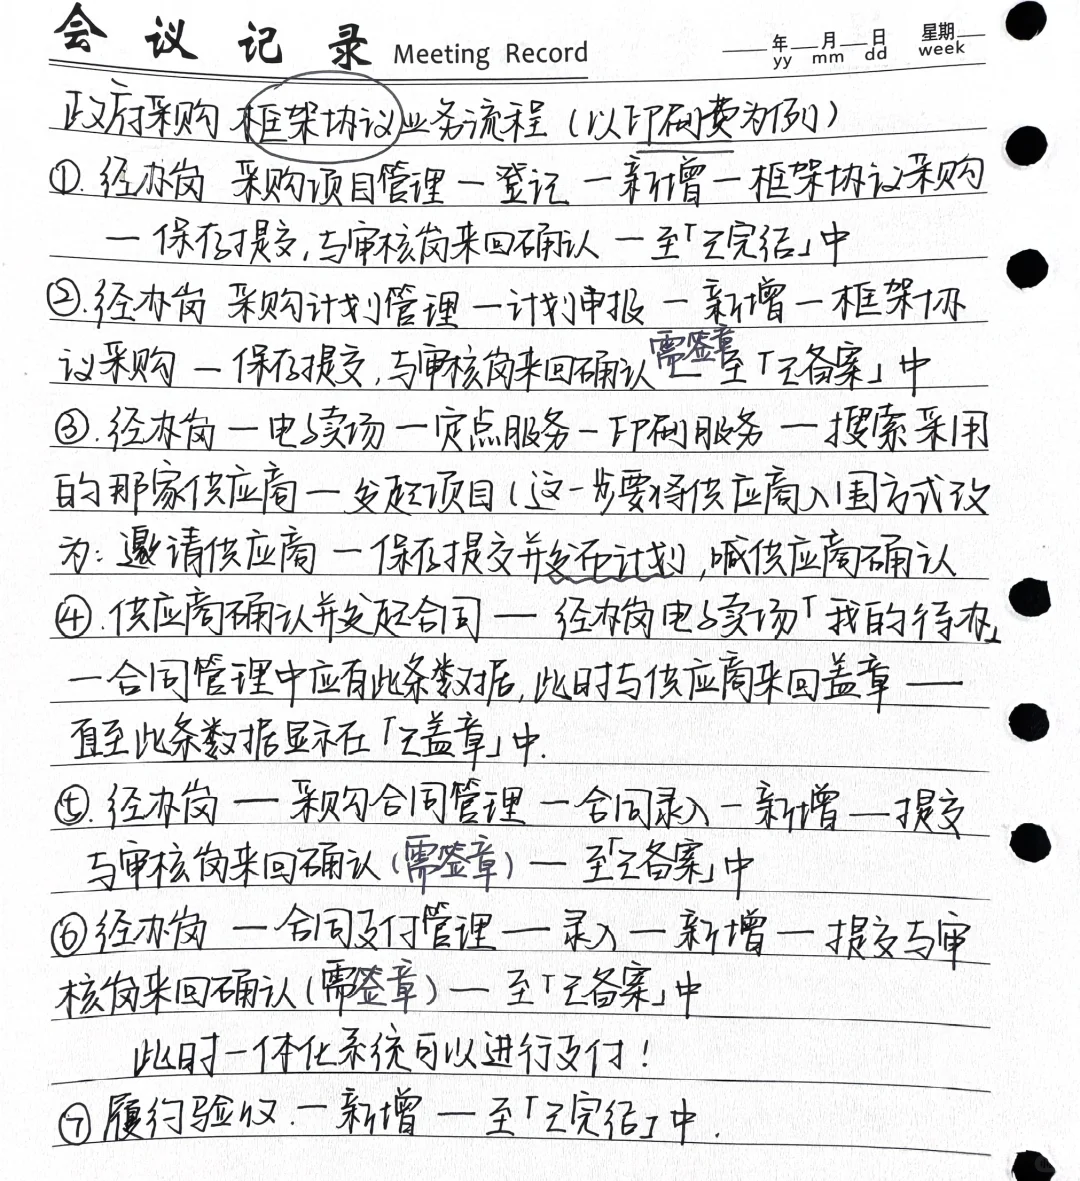 会议记录 Meeting Record 年 月 日 星期
yy mm dd week
政府采购 框架协议业务流程（以印刷费为例）
①.经办岗 采购项目管理—登记—新增—框架协议采购
—保存提交,与审核岗来回确认—至「已完结」中
②.经办岗 采购计划管理—计划申报—新增—框架协
需签章
议采购—保存提交,与审核岗来回确认—至「已备案」中
③.经办岗—电子卖场—定点服务—印刷服务—搜索采用
的那家供应商—发起项目(这一步要将供应商入围方式改
为:邀请供应商—保存提交并发布计划,喊供应商确认
④.供应商确认并发起合同—经办岗电子卖场「我的待办」
—合同管理中应有此条数据,此时与供应商来回盖章—
直至此条数据显示在「已盖章」中.
⑤.经办岗—采购合同管理—合同录入—新增—提交
与审核岗来回确认(需签章)—至「已备案」中
⑥经办岗—合同支付管理—录入—新增—提交与审
核岗来回确认(需签章)—至「已备案」中
此时一体化系统可以进行支付!
⑦履约验收.—新增—至「已完结」中.